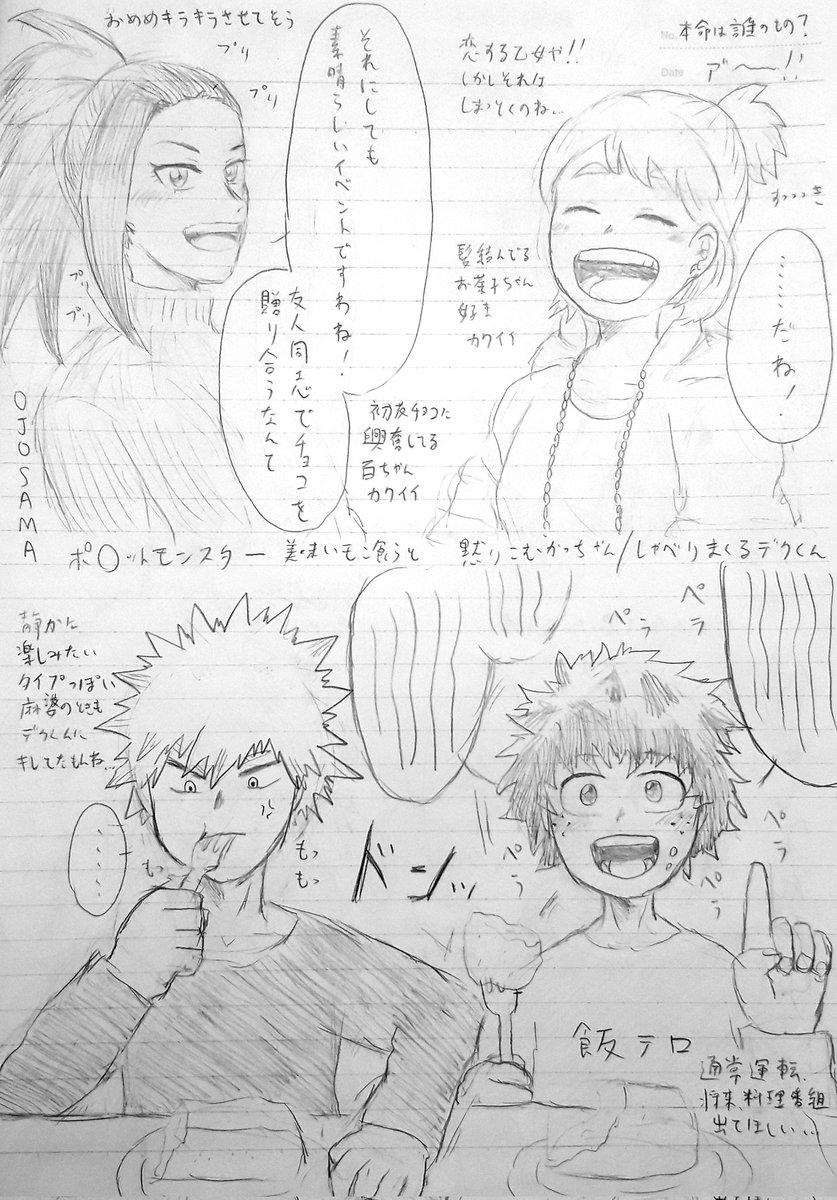 おめめキラキラさせてそう
プリ
プリ
それにしても
素晴らしいイベントですわね!
友人同志でチョコを
贈り合うなんて
プリ
プリ
OJOSAMA
恋する乙女や!!
しかしそれは
しまっとくのね…
No.
本命は誰のもの?
Date
ア〜〜!!
すっっっき
髪結んでる
お茶子ちゃん
好き
カワイイ
……だね!
初友チョコに
興奮してる
百ちゃん
カワイイ
ポ〇ットモンスター
美味いモン食うと
黙りこむかっちゃん/しゃべりまくるデクくん
静かに
楽しみたい
タイプっぽい
麻婆のときも
デクくんに
キレてたもんね…
……
もっ
もっ
もっ
ドンッ
ペラ
ペラ
ペラ
ペラ
ペラ
飯テロ
通常運転
将来、料理番組
出てほしい…